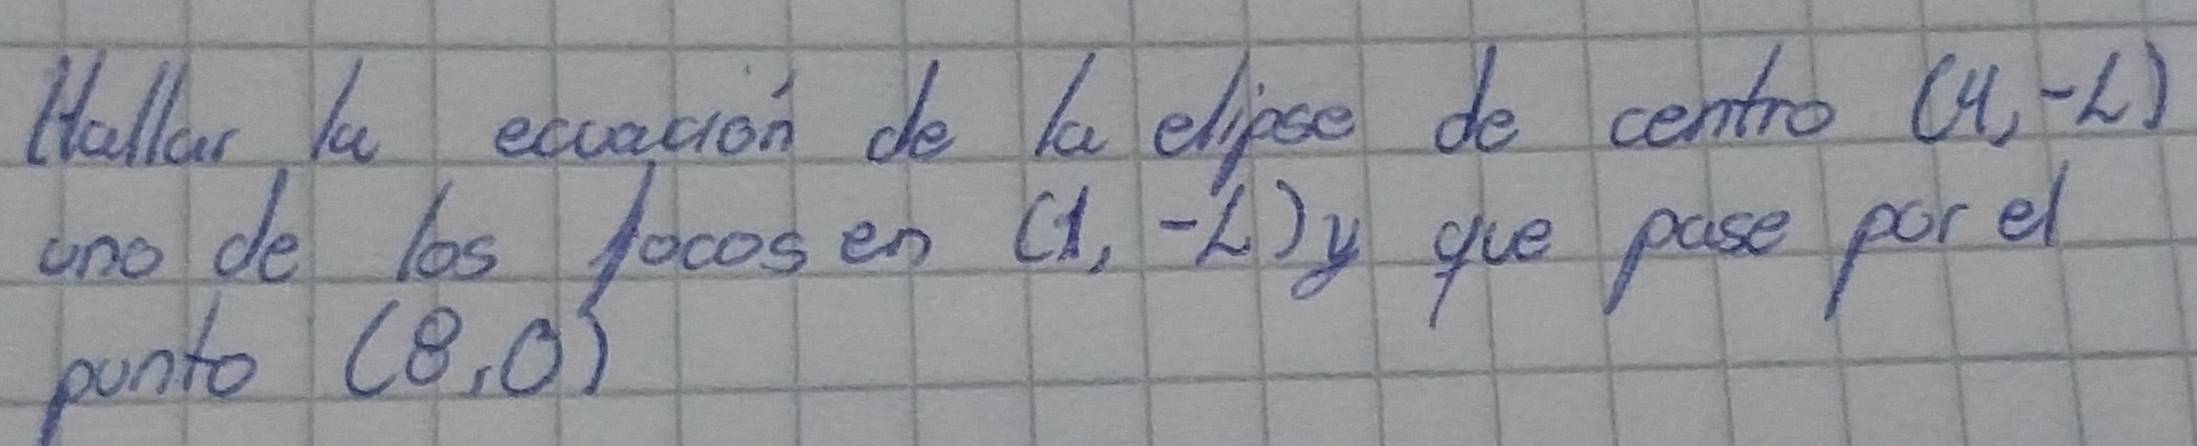 Hallar la ecuación de la elipse de centro (4, -2)
uno de los focos en (1, -2) y que pase por el
punto (8,0)